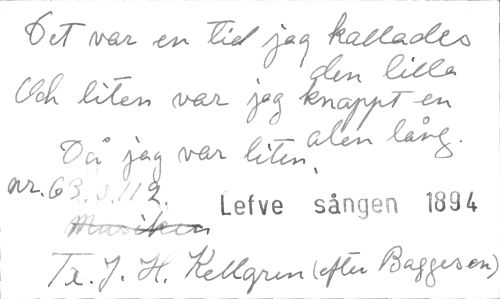 Det var en tid jag kallades
den lilla
Och liten var jag knappt en
alen lång.
Då jag var liten,
nr. 63. s. 112.
Lefve sången 1894
Musiken
Tx. J. H. Kellgren (efter Baggesen)